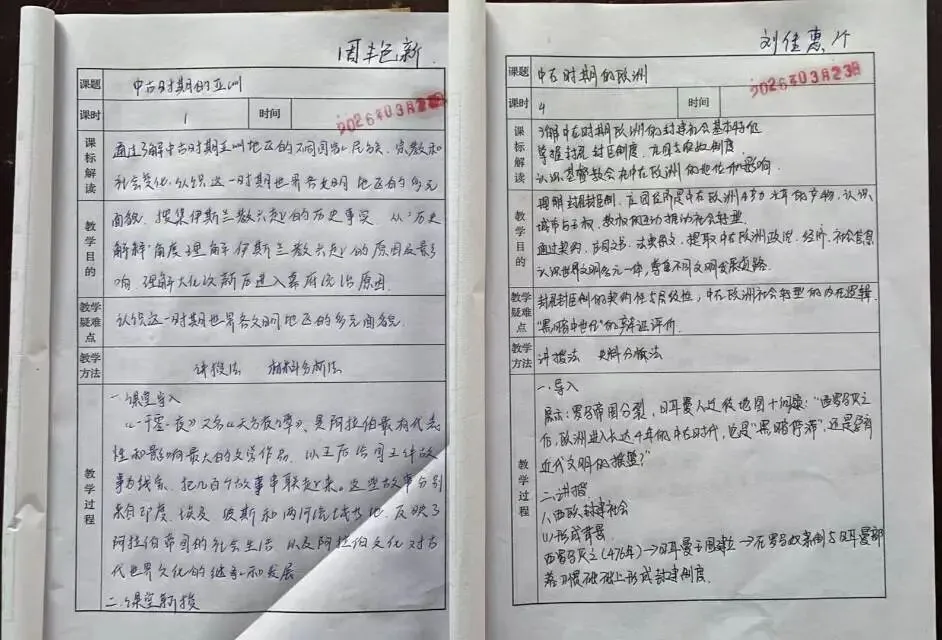 周丰色新
课题 中古时期的亚洲
课时 1 时间
2026年03月23日
课标解读
通过了解中古时期亚洲地区的不同国家、民族、宗教和
社会变化,认识这一时期世界各文明地区的多元
面貌。搜集伊斯兰教兴起的历史事实,从“历史
教学目的
解释”角度理解伊斯兰教兴起的原因及影
响,理解大化改新后进入幕府统治原因.
教学疑难点
认识这一时期世界各文明地区的多元面貌.
教学方法
讲授法 材料分析法
教学过程
一.课堂导入
《一千零一夜》又名《天方夜谭》,是阿拉伯最有代表
性和影响最大的文学作品,以王后给国王伴故
事为线索,把几百个故事串联起来。这些故事分别
来自印度、埃及、波斯和两河流域等地,反映了
阿拉伯帝国的社会生活,以及阿拉伯文化对古
代世界文化的继承和发展
二.课堂新授
刘佳惠
课题 中古时期的欧洲
课时 4 时间
2026年03月23日
课标解读
了解中古时期欧洲的封建社会基本特征
掌握封君封臣制度、庄园与农奴制度.
认识基督教会在中古欧洲的地位和影响.
教学目的
理解封君封臣制、庄园经济是中古欧洲的产物,认识
城市与王权、教权的互动推动社会转型.
通过契约、提取中古欧洲政治、经济、社会信息
认识世界文明多元一体,尊重不同文明发展道路.
教学疑难点
封君封臣制的契约性与层级性,中古欧洲社会转型的内在逻辑.
“黑暗中世纪”的辩证评价.
教学方法
讲授法 史料分析法
教学过程
一.导入
展示:罗马帝国分裂,日耳曼人迁徙地图+问题:“西罗马灭亡
后,欧洲进入长达千年的中古时代,这是“黑暗停滞”,还是孕育
近代文明的摇篮?”
二.讲授
1.西欧封建社会
(1)形成背景
西罗马灭亡(476年)→日耳曼王国建立→在罗马奴隶制与日耳曼部
落习惯基础上形成封建制度.